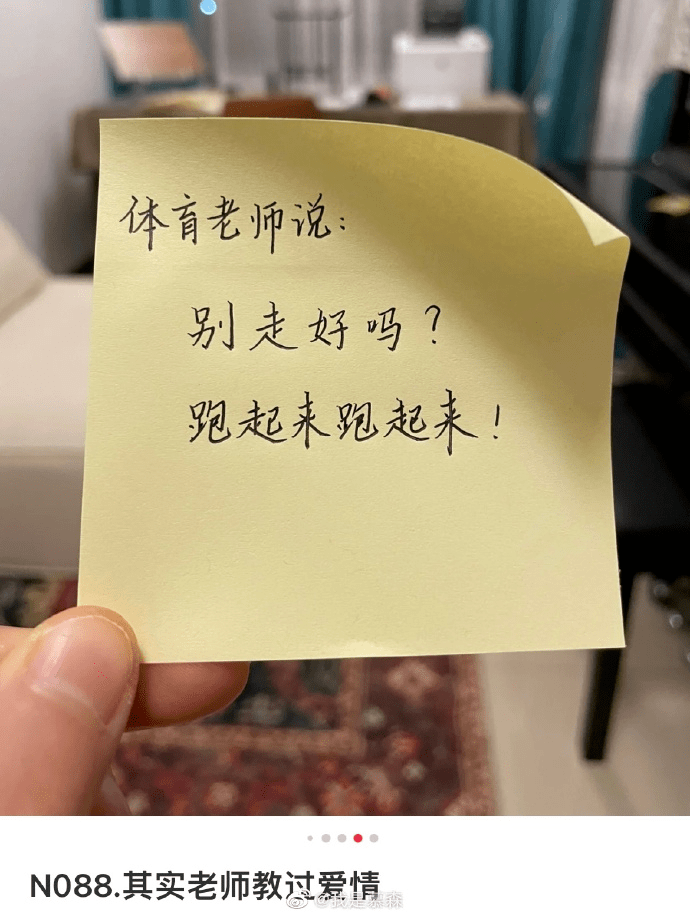 体育老师说：
别走好吗？
跑起来跑起来！
N088.其实老师教过爱情
@我是慕森